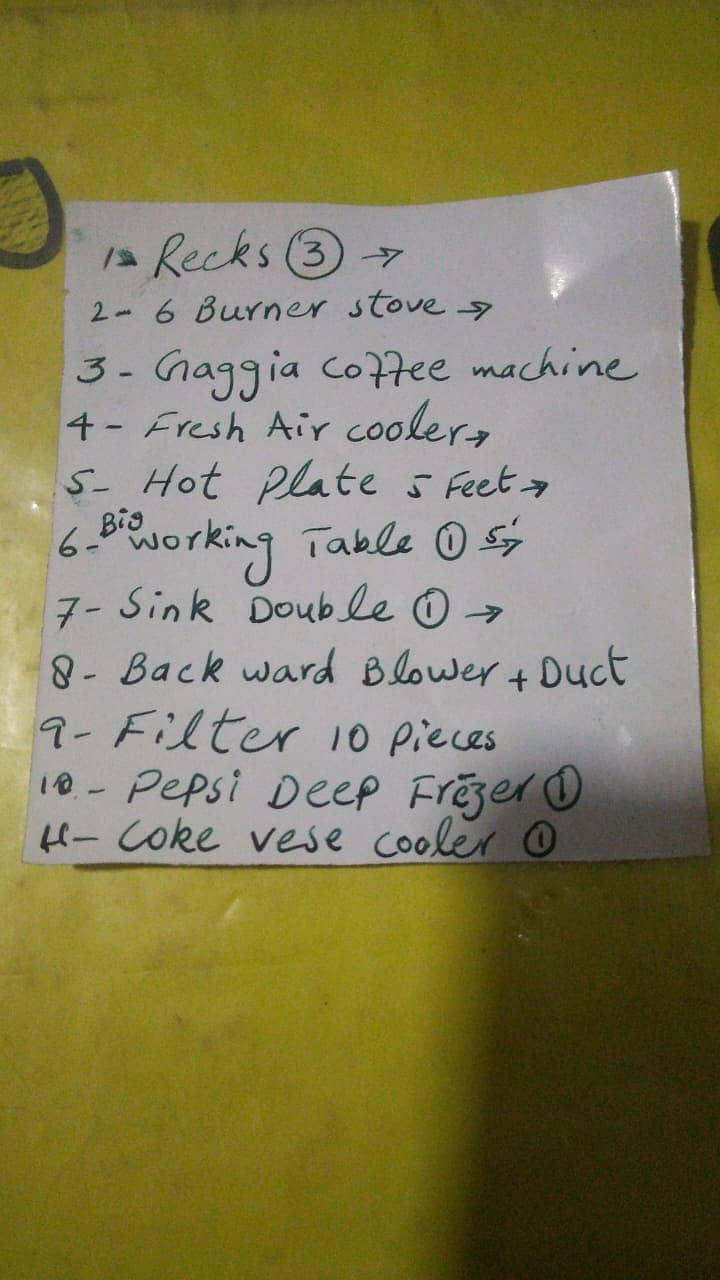 1- Recks (3) →
2- 6 Burner stove →
3- Gaggia coffee machine
4- Fresh Air cooler →
5- Hot Plate 5 Feet →
6- Big working Table (1) 5' →
7- Sink Double (1) →
8- Back ward Blower + Duct
9- Filter 10 Pieces
10- Pepsi Deep Frezer (1)
11- Coke vese cooler (1)